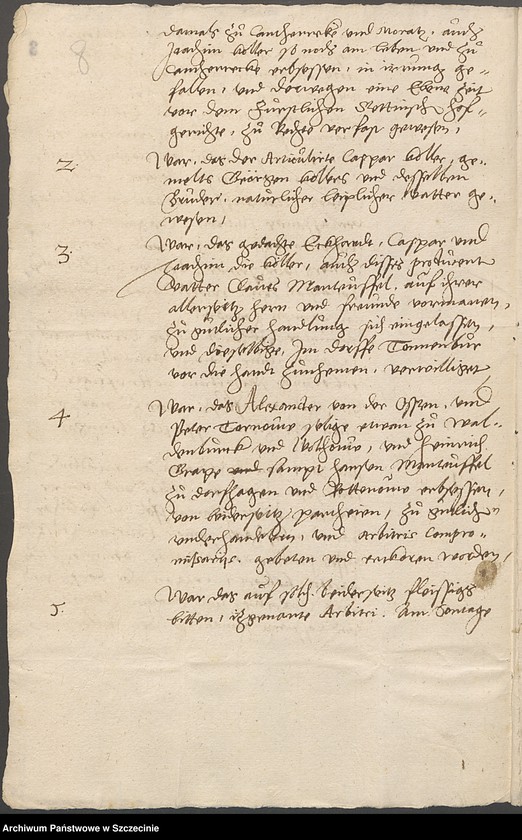 8
damals zu Canthrecke und Moratz, auch
Joachim Köller so noch am leben und zu
Canthrecke erbsessen, in irrung ge-
fallen, und derwegen eine ebene Zeit
vor dem Fürstlichen Stettinisch Hof-
gerichte, zu Rechte verfast gewesen,
2. War, das der Articulirte Caspar Köller, ge-
melts Georgen Köllers und desselben
Brüder, natürlicher leiplicher vatter ge-
wesen,
3. War, das gedachte Eckhardt, Caspar und
Joachim die Köller, auch disses producent
vatter Claues Manteuffel, auf ihrer
allerseitz hern und freunde vormanen,
zu gutlicher handlung sich eingelassen,
und dieselbige, Im dorffe Tonnenbur
vor die handt zunhemen, verwilliget
4. War, das Alexander von der Osten, und
Peter Tornowe selige etwan zu Wal-
denburck und Bothowe, und Heinrich
Grape und sampt Hansen Manteuffel
zu dorfhagen und Rottenowe erbsessen,
von beiderseitz partheien, zu gutlichen
underhandelern, und arbitris compro-
missariis, gebeten und erekoren worden,
5. War das auf solch beiderseitz fleissigs
bitten, itzgenante Arbitri, Am Sontage
Archiwum Państwowe w Szczecinie